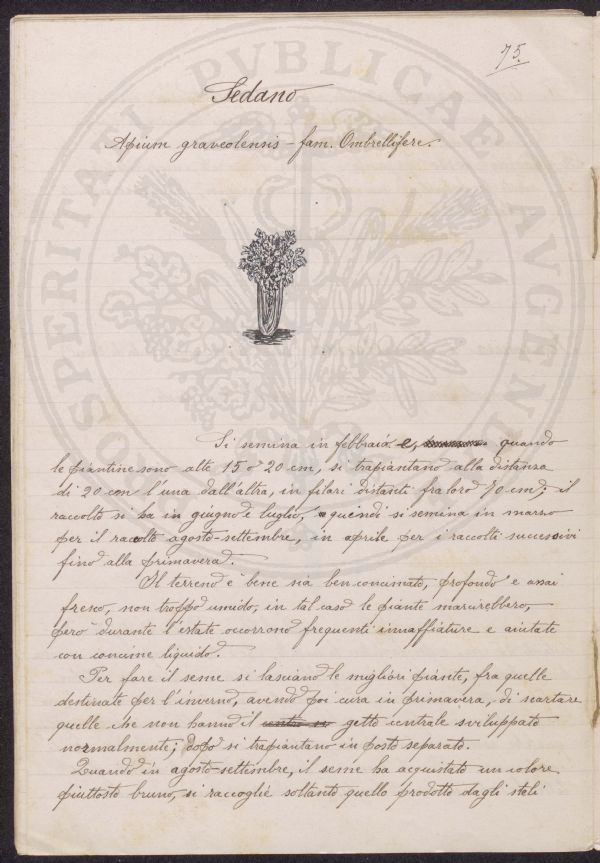 75.
Sedano
Apium graveolensis - fam. Ombrellifere.
Si semina in febbraio e, quando
le piantine sono alte 15 o 20 cm, si trapiantano alla distanza
di 20 cm l'una dall'altra, in filari distanti fra loro 70 cm; il
raccolto si ha in giugno e luglio, quindi si semina in marzo
per il racolto agosto-settembre, in aprile per i raccolti successivi
fino alla primavera.
Il terreno è bene sia ben concimato, profondo e assai
fresco, non troppo umido, in tal caso le piante marcirebbero,
però durante l'estate occorrono frequenti innaffiature e aiutate
con concime liquido.
Per fare il seme si lasciano le migliori piante, fra quelle
destinate per l'inverno, avendo poi cura in primavera, di scartare
quelle che non hanno il getto centrale sviluppato
normalmente; dopo si trapiantano in posto separato.
Quando in agosto-settembre, il seme ha acquistato un colore
piuttosto bruno, si raccoglie soltanto quello prodotto dagli steli
PROSPERITATI PVBLICAE AVGENDAE